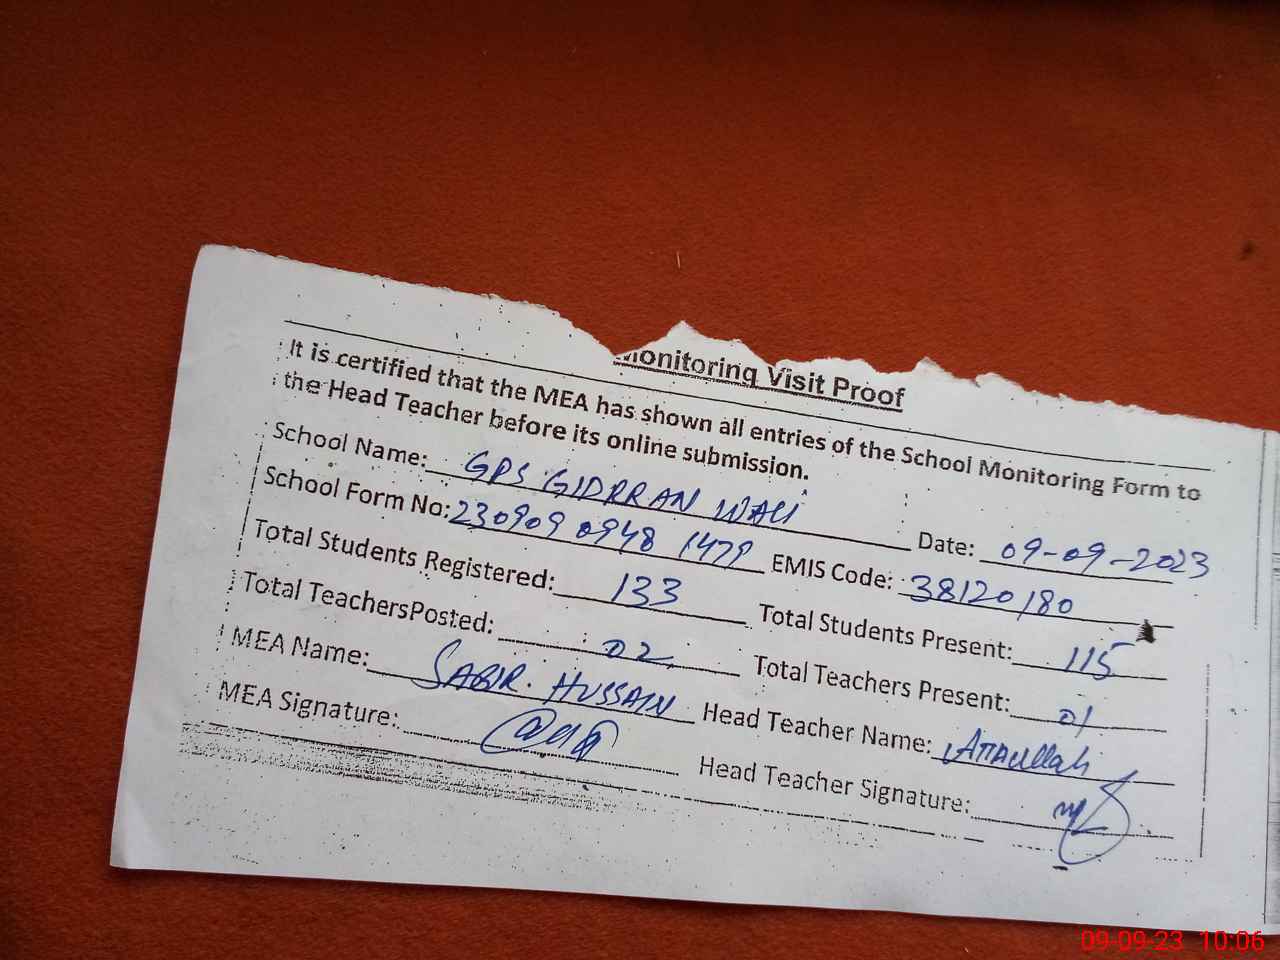 Monitoring Visit Proof
It is certified that the MEA has shown all entries of the School Monitoring Form to
the Head Teacher before its online submission.
School Name: GPS GIDRRAN WALI Date: 09-09-2023
School Form No: 230909 0948 1479 EMIS Code: 38120180
Total Students Registered: 133 Total Students Present: 115
Total TeachersPosted: 02 Total Teachers Present: 01
MEA Name: SABIR HUSSAIN Head Teacher Name: Attaullah
MEA Signature: Head Teacher Signature:
09-09-23 10:06